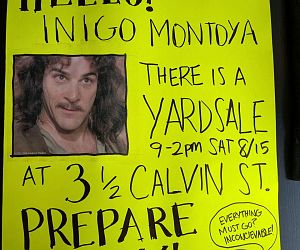 HELLO!
INIGO MONTOYA
THERE IS A
YARDSALE
9-2pm SAT 8/15
AT 3 1/2 CALVIN ST.
PREPARE
EVERYTHING
MUST GO?
INCONCIEVABLE!